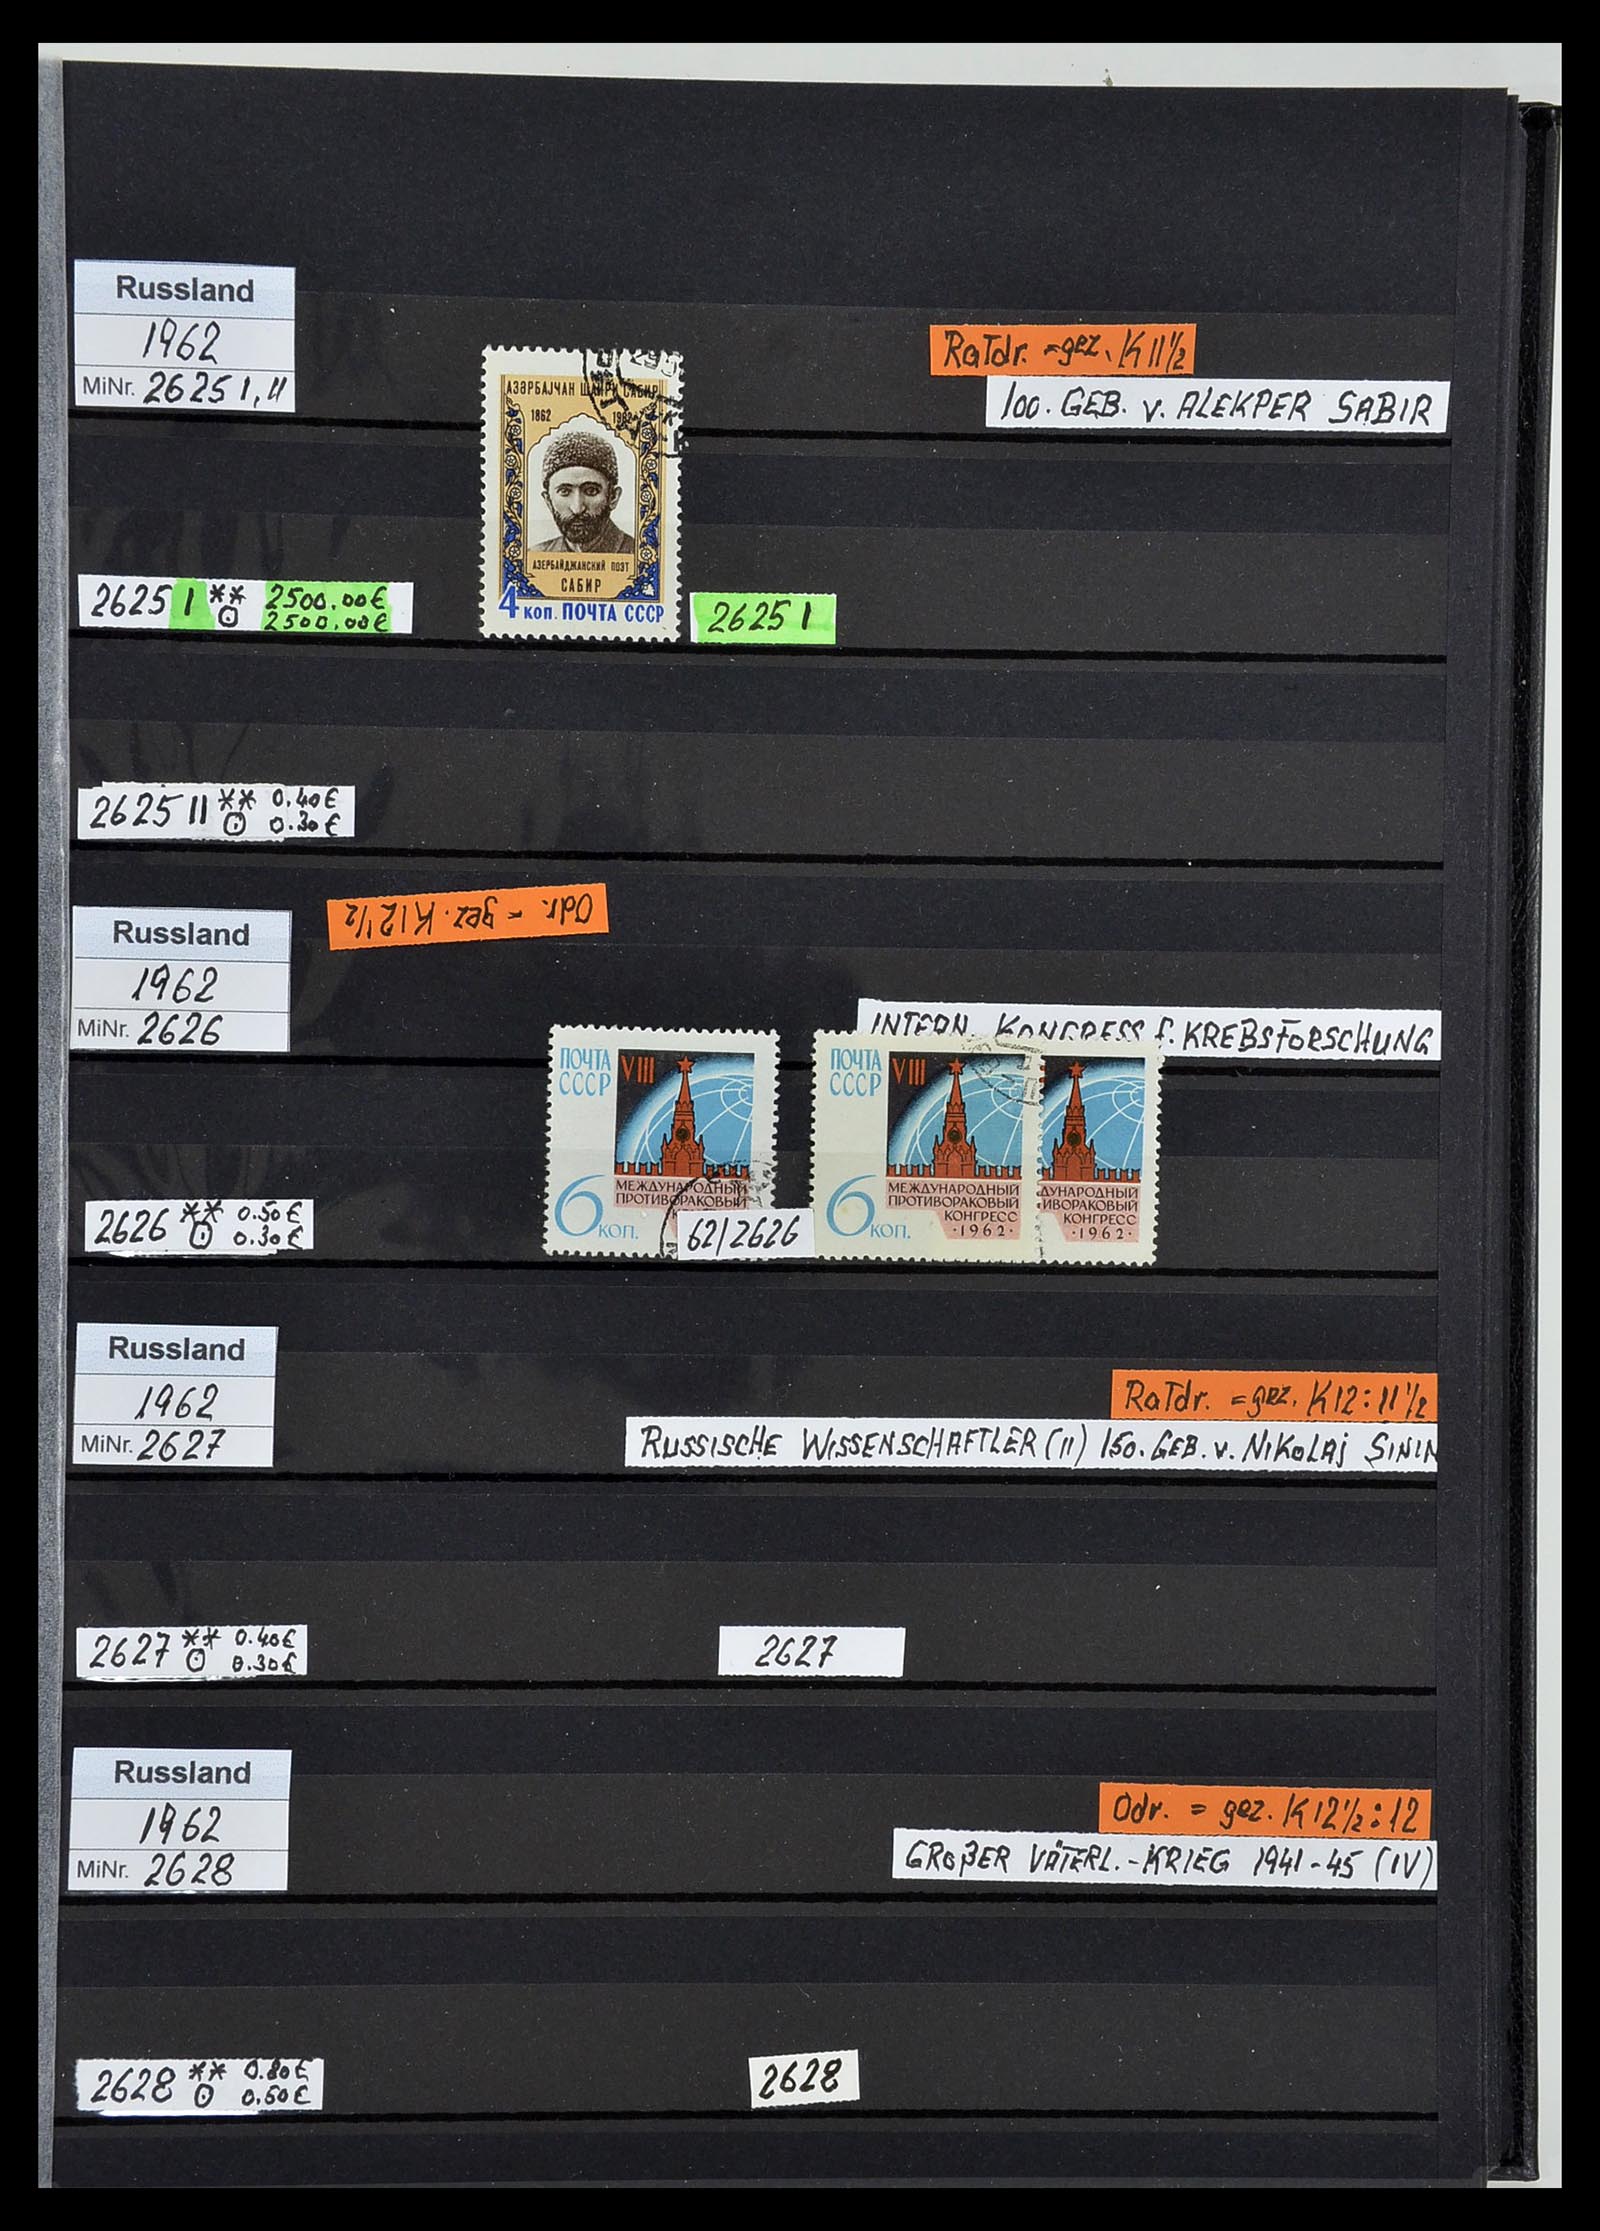 Russland
1962
MiNr. 2625 I, II
RaTdr. = gez. K 11½
100. GEB. v. ALEKPER SABIR
АЗӘРБАЈҸАН ШАИРИ САБИР
1862 1962
АЗЕРБАЙДЖАНСКИЙ ПОЭТ
САБИР
4 КОП. ПОЧТА СССР
2625 I ** 2500.00€
⊙ 2500.00€
2625 I
2625 II ** 0.40€
⊙ 0.30€
Russland
1962
MiNr. 2626
Odr. = gez. K 12½
INTERN. KONGRESS f. KREBSFORSCHUNG
ПОЧТА
СССР
VIII
МЕЖДУНАРОДНЫЙ
ПРОТИВОРАКОВЫЙ
6 КОП.
ПОЧТА
СССР
VIII
МЕЖДУНАРОДНЫЙ
ПРОТИВОРАКОВЫЙ
КОНГРЕСС
·1962·
6 КОП.
ДУНАРОДНЫЙ
ИВОРАКОВЫЙ
КОНГРЕСС
·1962·
62/2626
2626 ** 0.50€
⊙ 0.30€
Russland
1962
MiNr. 2627
RaTdr. = gez. K 12 : 11½
RUSSISCHE WISSENSCHAFTLER (II) 150. GEB. v. NIKOLAJ SININ
2627 ** 0.40€
⊙ 0.30€
2627
Russland
1962
MiNr. 2628
Odr. = gez. K 12½ : 12
GROßER VÄTERL.-KRIEG 1941-45 (IV)
2628 ** 0.80€
⊙ 0.50€
2628